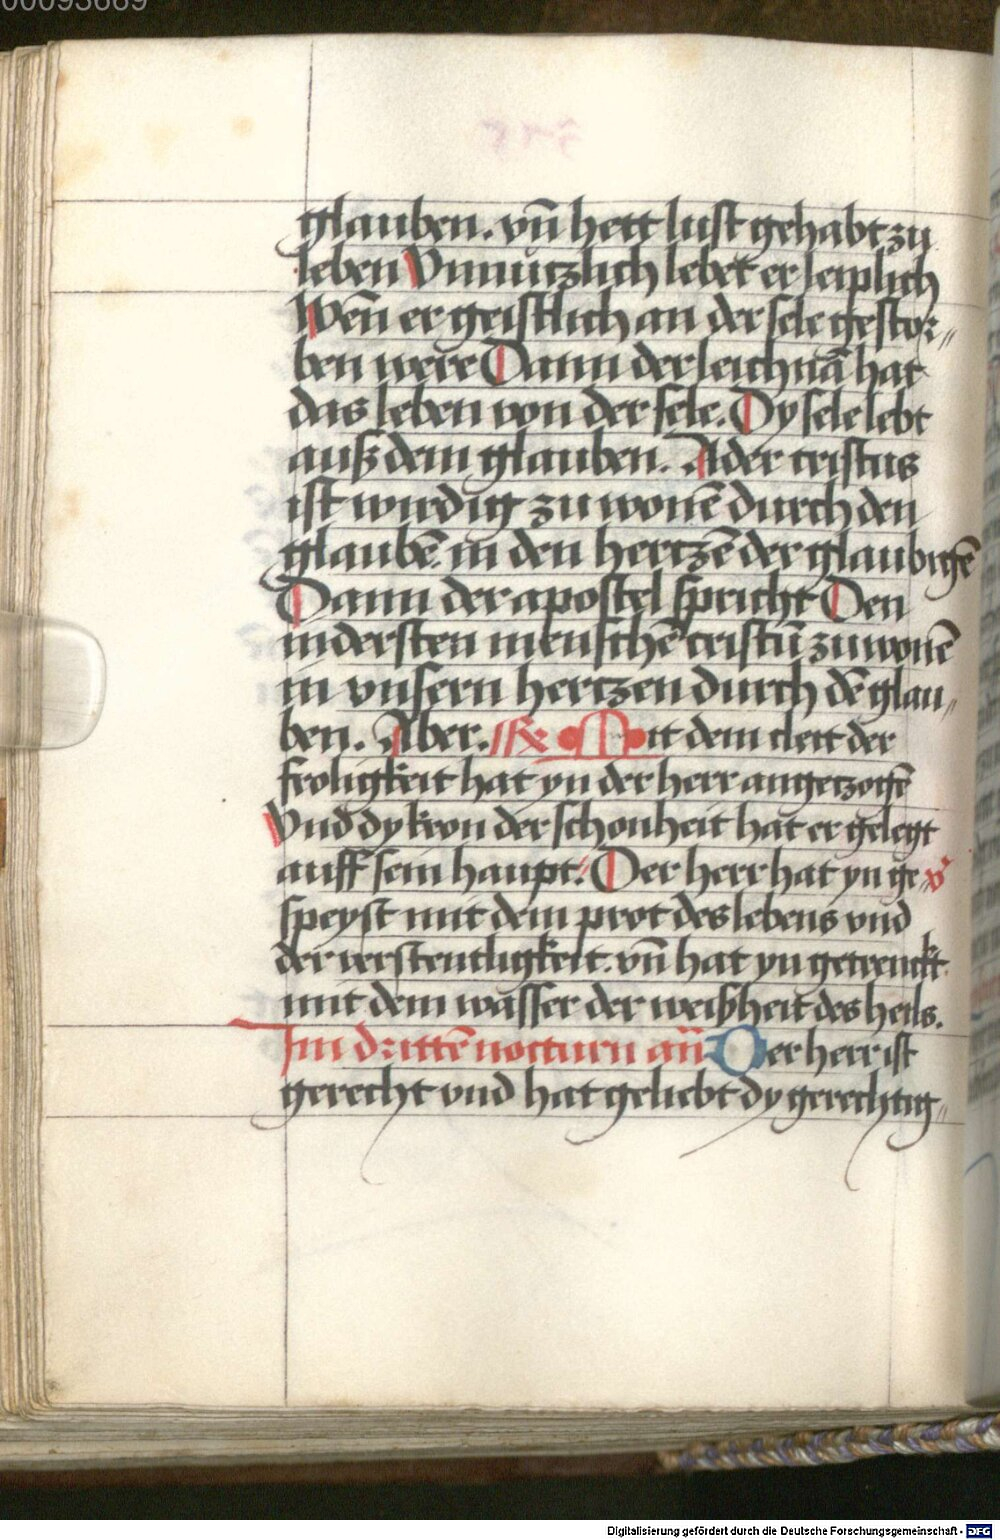 00093689
glauben. vn̄ hett lust gehabt zu
leben Vnnutzlich lebet er leiplich
Wen̄ er geistlich an der sele gestor„
ben were Dann der leichnā hat
das leben von der sele. Dy sele lebt
auß dem glauben. Ader cristus
ist wirdig zu wonē durch den
glaubē. in den hertzē der glaubigē
Dann der apostel spricht Den
indersten menschē cristū zu wonē
in vnsern hertzen durch dē glau„
ben. Aber. Mit dem cleit der
froligkeit hat yn der herr angetzogē
Vnd dy kron der schonheit hat er gelegt
auff sein haupt. Der herr hat yn ge v̕
speyst mit dem prot des lebens vnd
der verstentligkeit. vn̄ hat yn getrenckt
mit dem wasser der weißheit des heils.
Im drittē nocturn an̄ Der herr ist
gerecht vnd hat geliebt dy gerechtig„
Digitalisierung gefördert durch die Deutsche Forschungsgemeinschaft - DFG